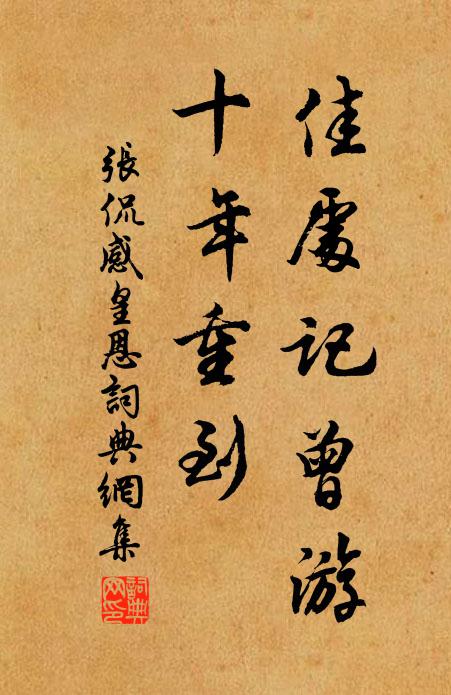 佳處記曾游
十年重到
張侃感皇恩詞典網集
詞典網印